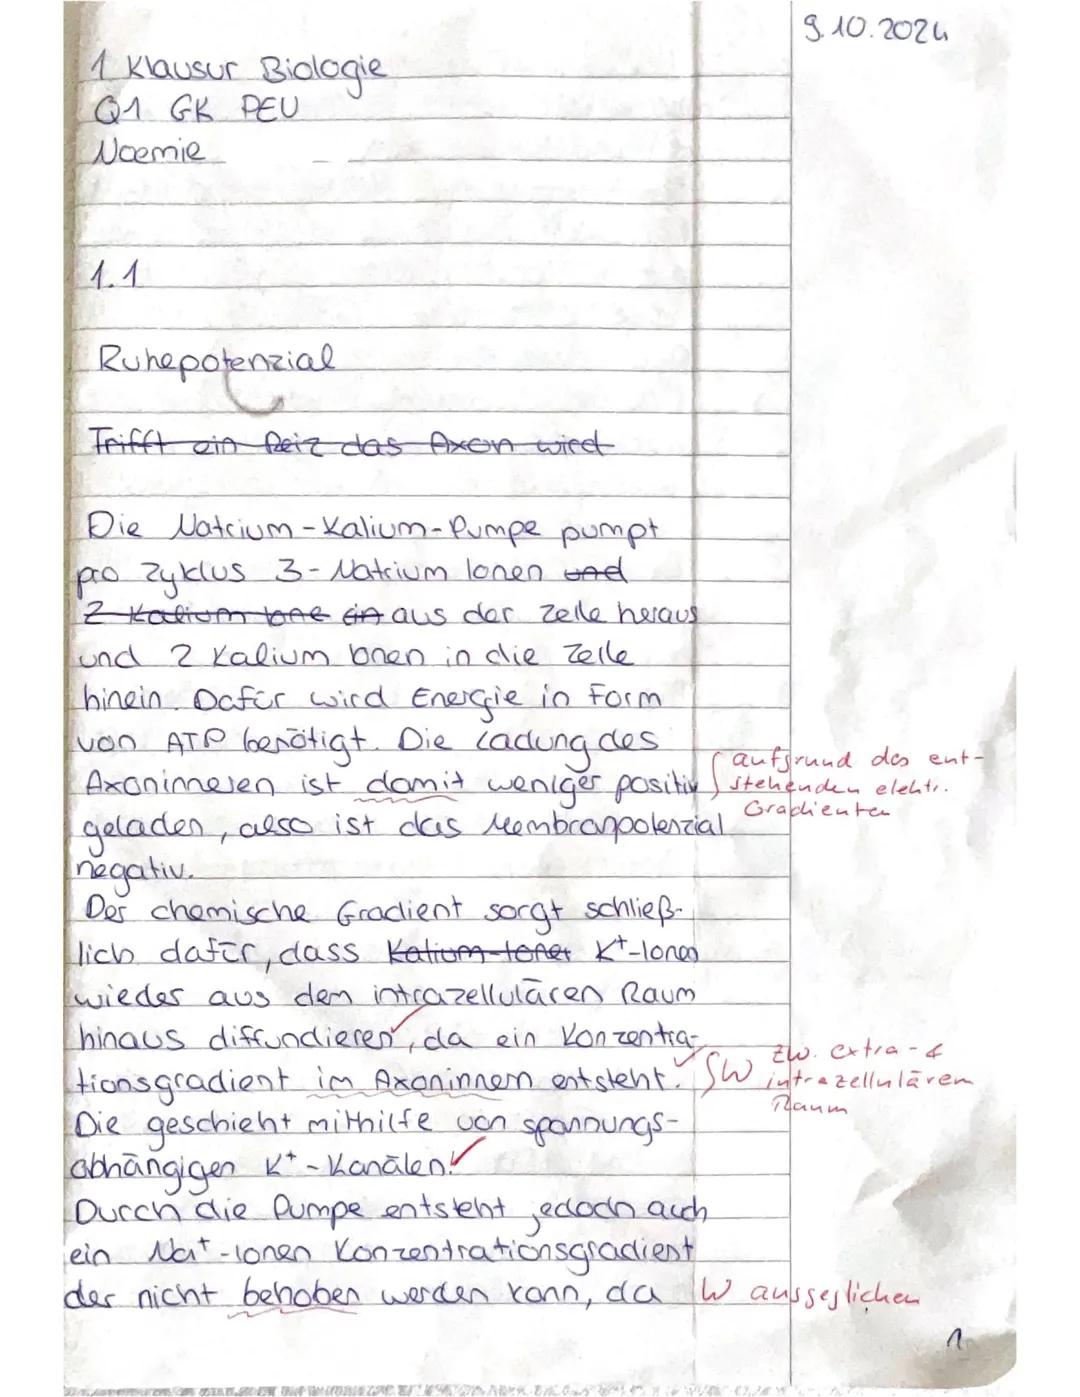 9.10.2024
1 Klausur Biologie
Q1 GK PEU
Noemie
1.1
Ruhepotenzial
Trifft ein Reiz das Axon wird
Die Natrium-Kalium-Pumpe pumpt
pro Zyklus 3-Natrium Ionen und
2 Kalium Ione in aus der Zelle heraus
und 2 Kalium Ionen in die Zelle
hinein. Dafür wird Energie in Form
von ATP benötigt. Die Ladung des
Axoninneren ist damit weniger positiv
aufgrund des ent-
stehenden elektr.
Gradienten
geladen, also ist das Membranpotenzial
negativ.
Der chemische Gradient sorgt schließ-
lich dafür, dass Kalium-Ionen K⁺-Ionen
wieder aus dem intrazellulären Raum
hinaus diffundieren ✓, da ein Konzentra-
tionsgradient im Axoninnern entsteht. ✓
SW zw. extra- &
intrazellulärem
Raum
Die geschieht mithilfe von spannungs-
abhängigen K⁺-Kanälen. ✓
Durch die Pumpe entsteht jedoch auch
ein Na⁺-Ionen Konzentrationsgradient
der nicht behoben werden kann, da
W ausgeglichen
1